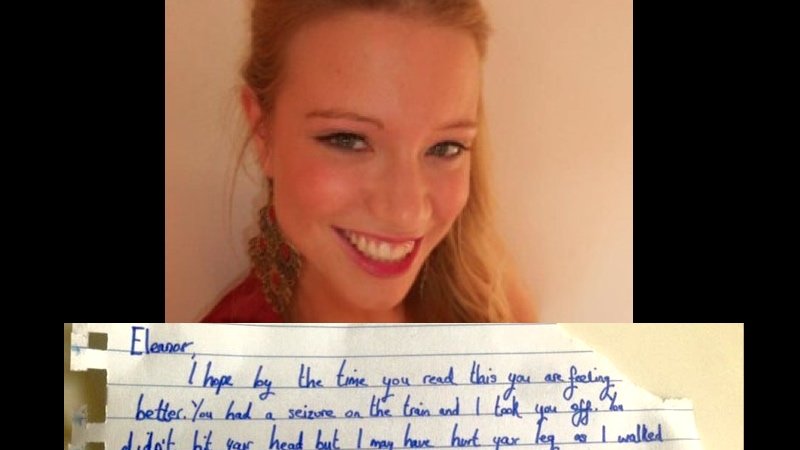 Eleanor,
I hope by the time you read this you are feeling
better. You had a seizure on the train and I took you off. You
didn't hit your head but I may have hurt your leg as I walked